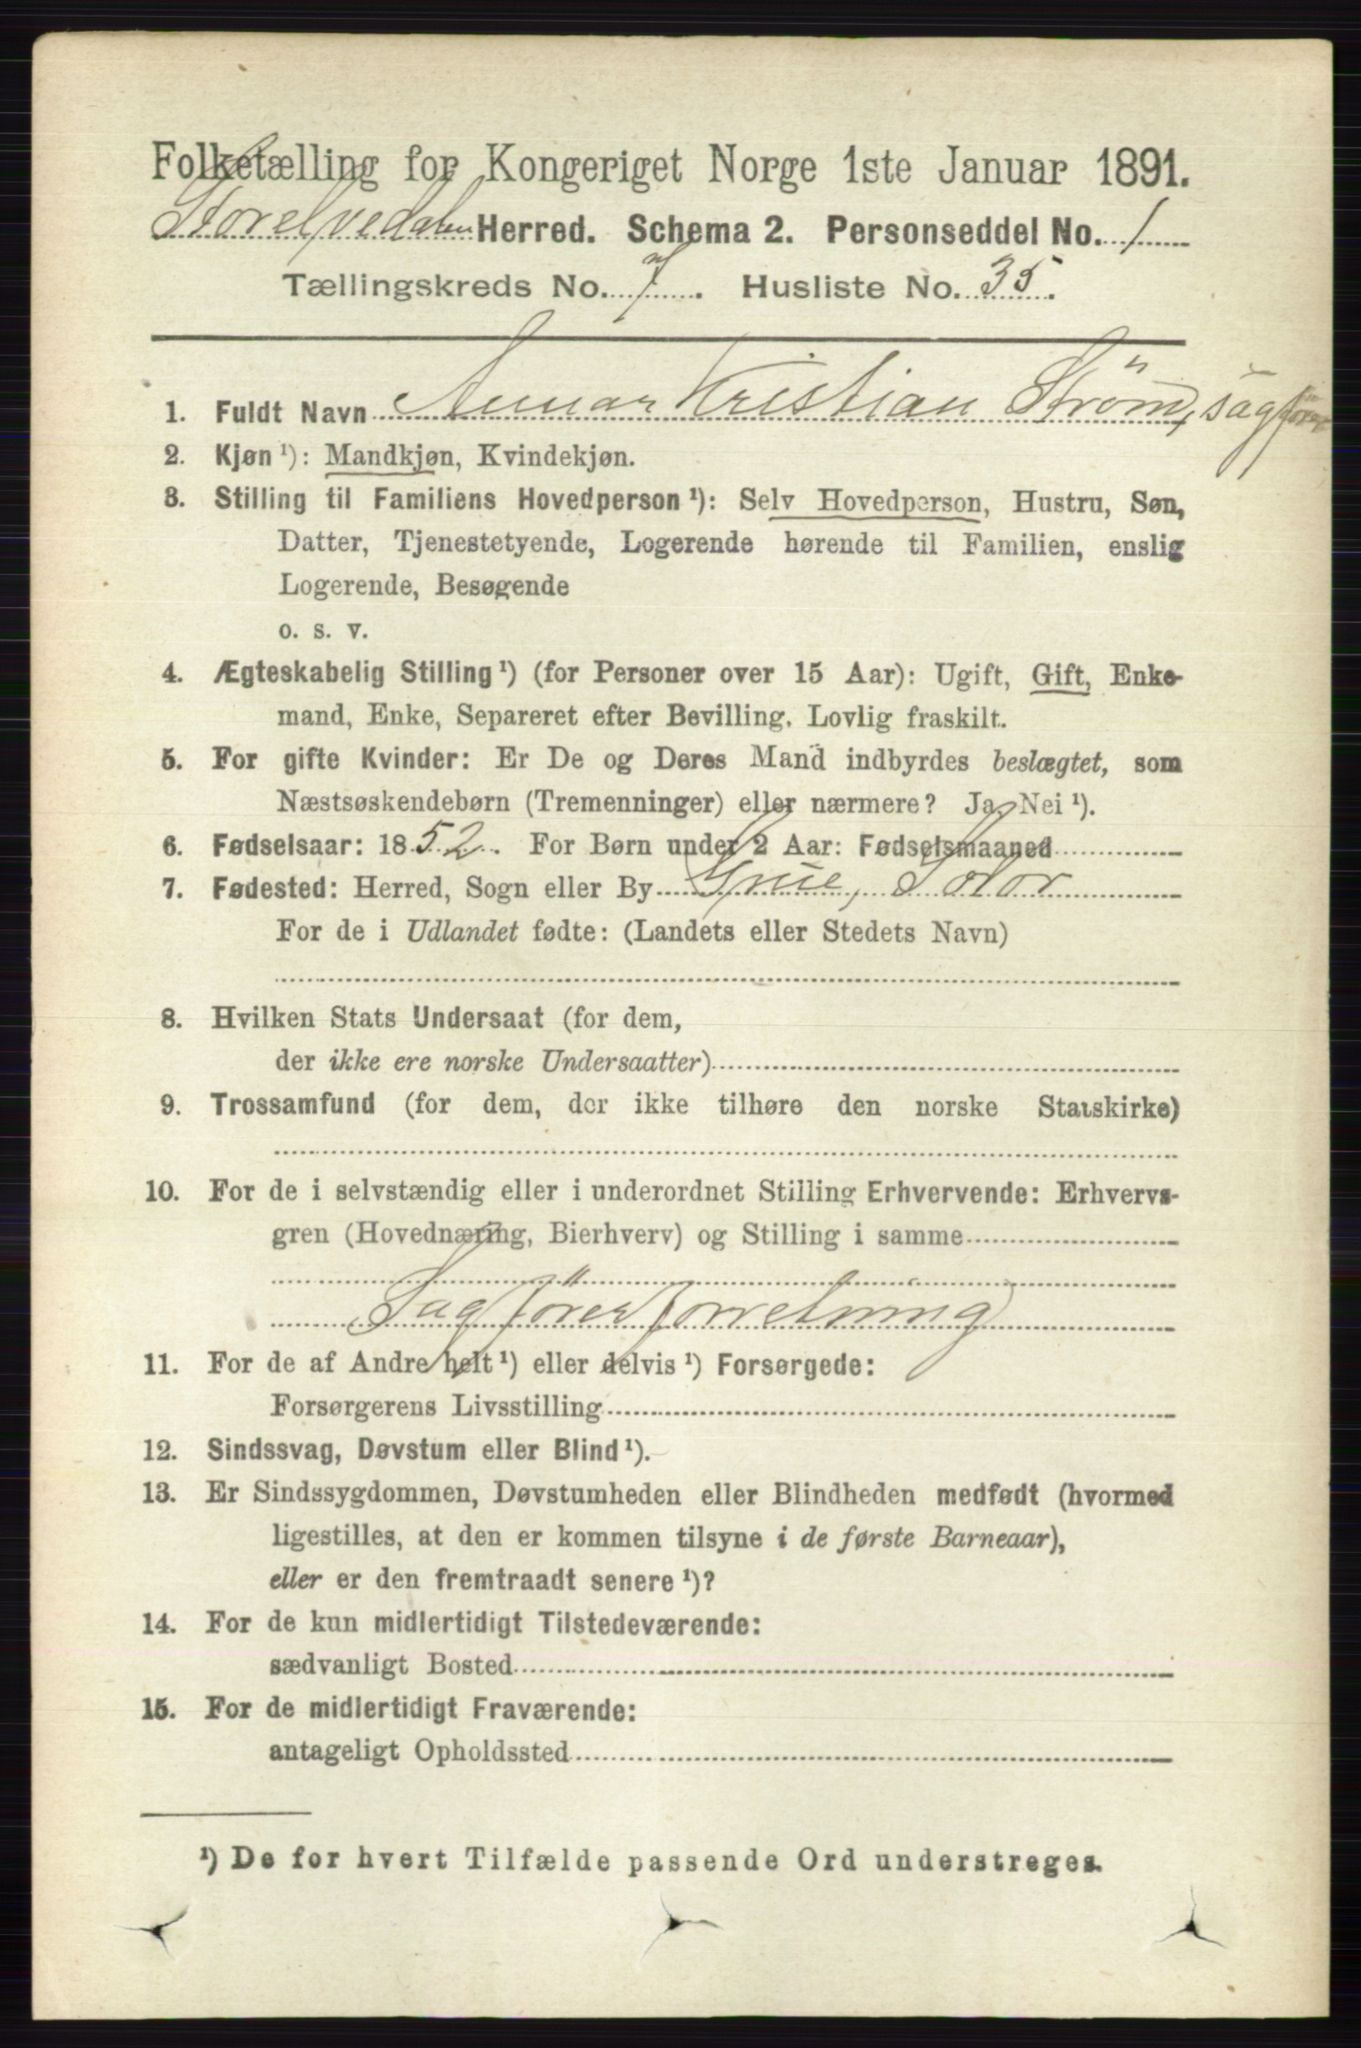 Folketælling for Kongeriget Norge 1ste Januar 1891.
Storelvedalen Herred. Schema 2. Personseddel No. 1
Tællingskreds No. 7. Husliste No. 35.
1. Fuldt Navn Kristian Strøm, sagfører
2. Kjøn ¹): Mandkjøn, Kvindekjøn.
3. Stilling til Familiens Hovedperson ¹): Selv Hovedperson, Hustru, Søn,
Datter, Tjenestetyende, Logerende hørende til Familien, enslig
Logerende, Besøgende
o. s. v.
4. Ægteskabelig Stilling ¹) (for Personer over 15 Aar): Ugift, Gift, Enke-
mand, Enke, Separeret efter Bevilling. Lovlig fraskilt.
5. For gifte Kvinder: Er De og Deres Mand indbyrdes beslægtet, som
Næstsøskendebørn (Tremenninger) eller nærmere? Ja, Nei ¹).
6. Fødselsaar: 1852. For Børn under 2 Aar: Fødselsmaaned
7. Fødested: Herred, Sogn eller By Grue, Solør
For de i Udlandet fødte: (Landets eller Stedets Navn)
8. Hvilken Stats Undersaat (for dem,
der ikke ere norske Undersaatter)
9. Trossamfund (for dem, der ikke tilhøre den norske Statskirke)
10. For de i selvstændig eller i underordnet Stilling Erhvervende: Erhvervs-
gren (Hovednæring, Bierhverv) og Stilling i samme
Sagførerforretning
11. For de af Andre helt ¹) eller delvis ¹) Forsørgede:
Forsørgerens Livsstilling
12. Sindssvag, Døvstum eller Blind ¹).
13. Er Sindssygdommen, Døvstumheden eller Blindheden medfødt (hvormed
ligestilles, at den er kommen tilsyne i de første Barneaar),
eller er den fremtraadt senere ¹)?
14. For de kun midlertidigt Tilstedeværende:
sædvanligt Bosted
15. For de midlertidigt Fraværende:
antageligt Opholdssted
¹) De for hvert Tilfælde passende Ord understreges.